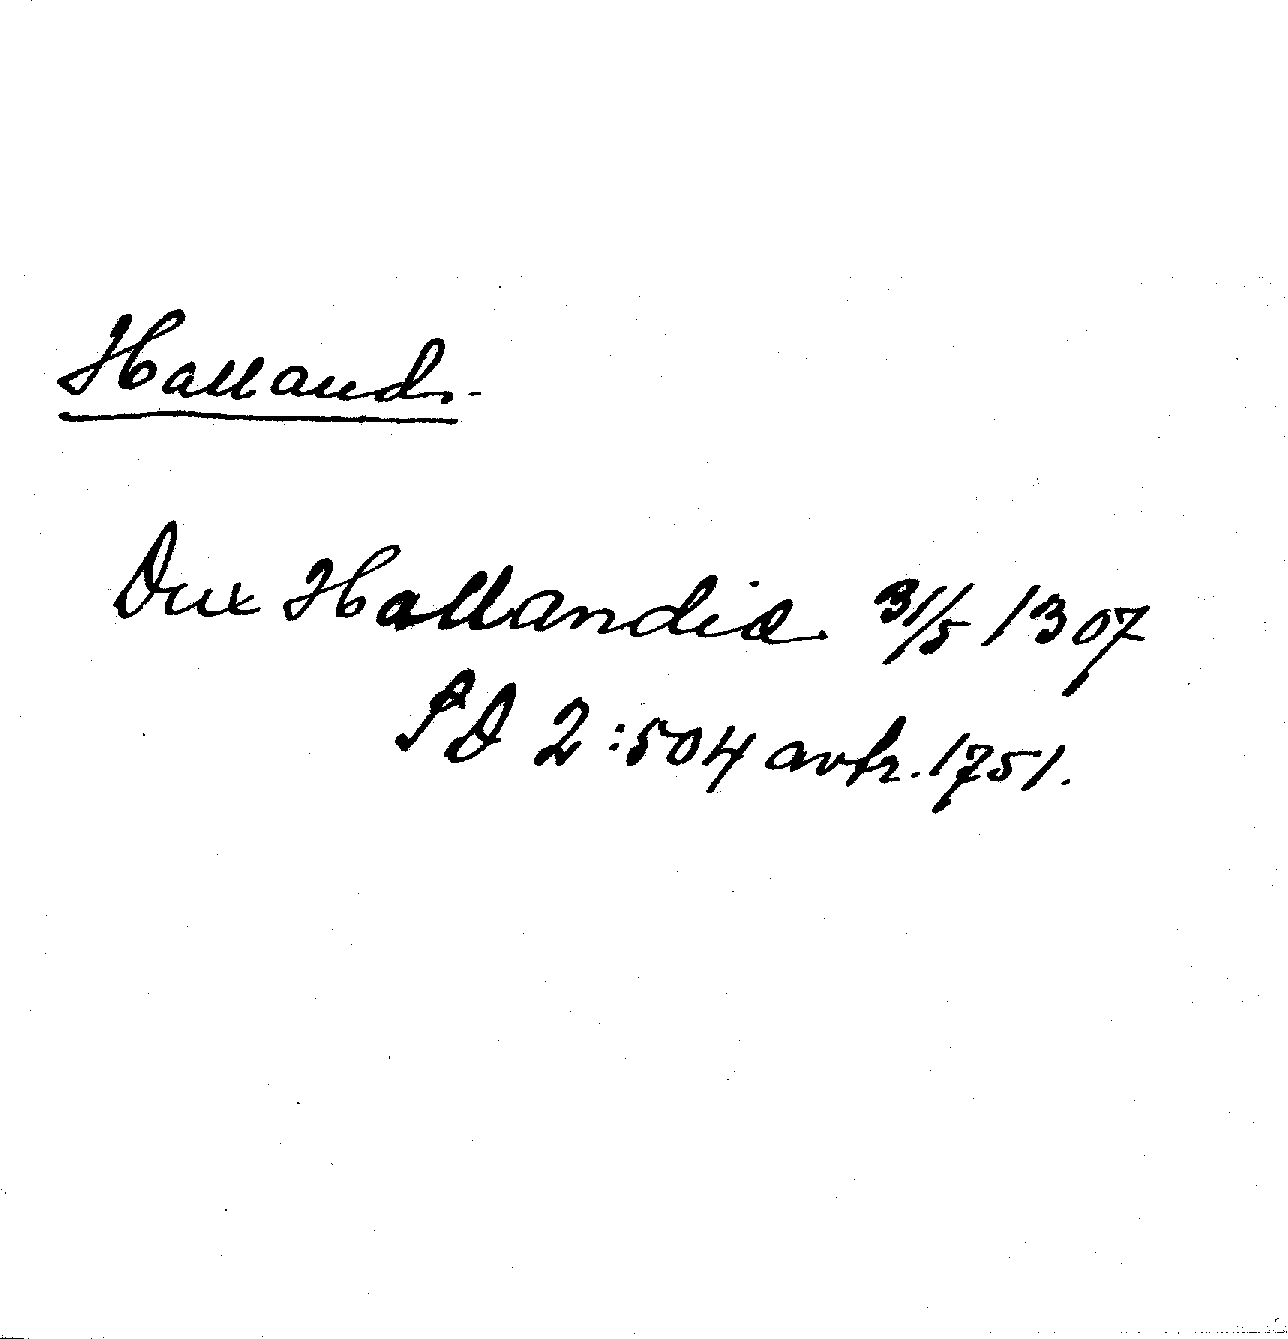 Halland.
Dux Hallandiæ 31/5 1307
SD 2:504 avtr. 1751.